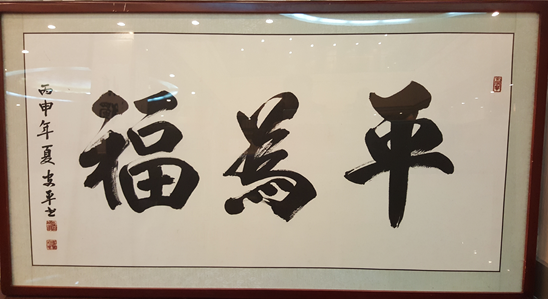 平為福
丙申年夏安平书